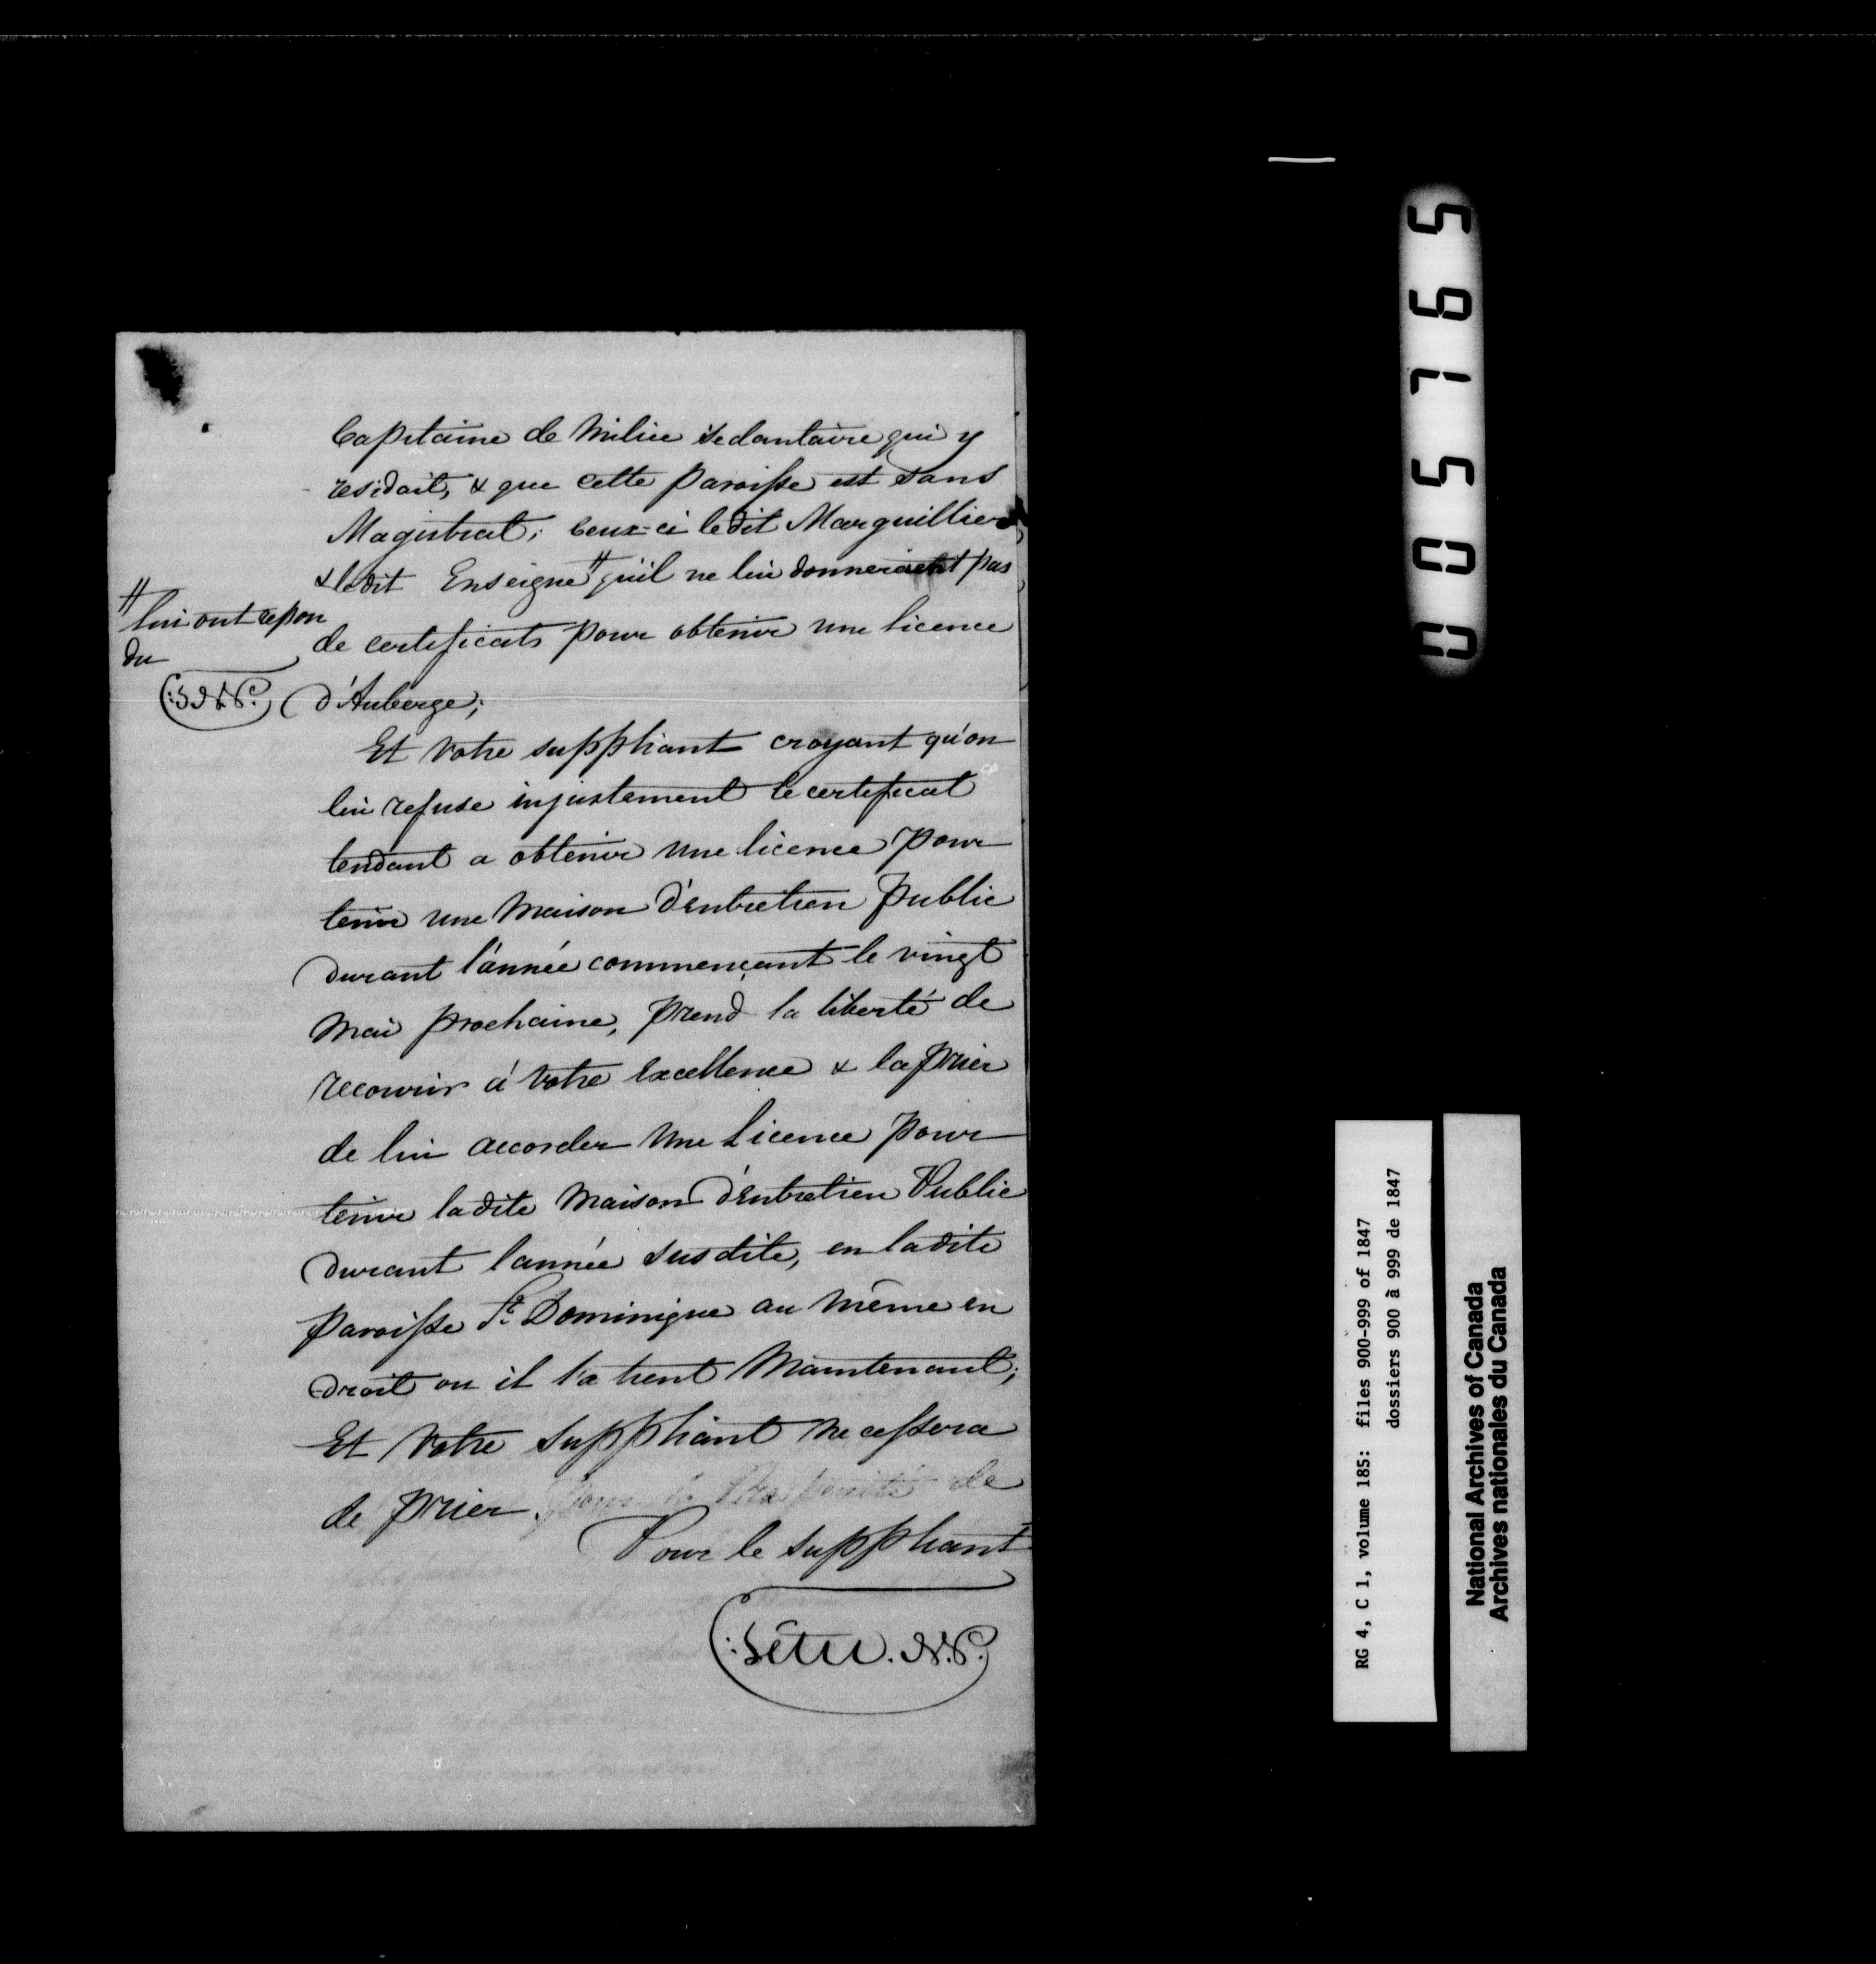 Capitaine de Milice sedantaire qui y
residait, & que cette paroisse est sans
Magistrat; ceux-ci ledit Marguillier
& ledit Enseigne # qu'il ne lui donneraient pas
# lui ont repon
du
de certificats pour obtenir une licence
d'Auberge;
Et Votre suppliant croyant qu'on
lui refuse injustement le certificat
tendant a obtenir une licence pour
tenir une Maison d'entretien public
durant l'année commençant le vingt
Mai prochaine, prend la liberté de
recourir à Votre Excellence & la prier
de lui accorder une Licence pour
tenir ladite Maison d'Entretien Public
durant l'année susdite, en ladite
paroisse St. Dominique au même en
droit ou il la tient Maintenant;
Et Votre suppliant ne cessera
de prier. pour la Prosperité de
Pour le suppliant
: Sétu. N.P.
00S1765
RG 4, C 1, volume 185: files 900-999 of 1847
dossiers 900 à 999 de 1847
National Archives of Canada
Archives nationales du Canada